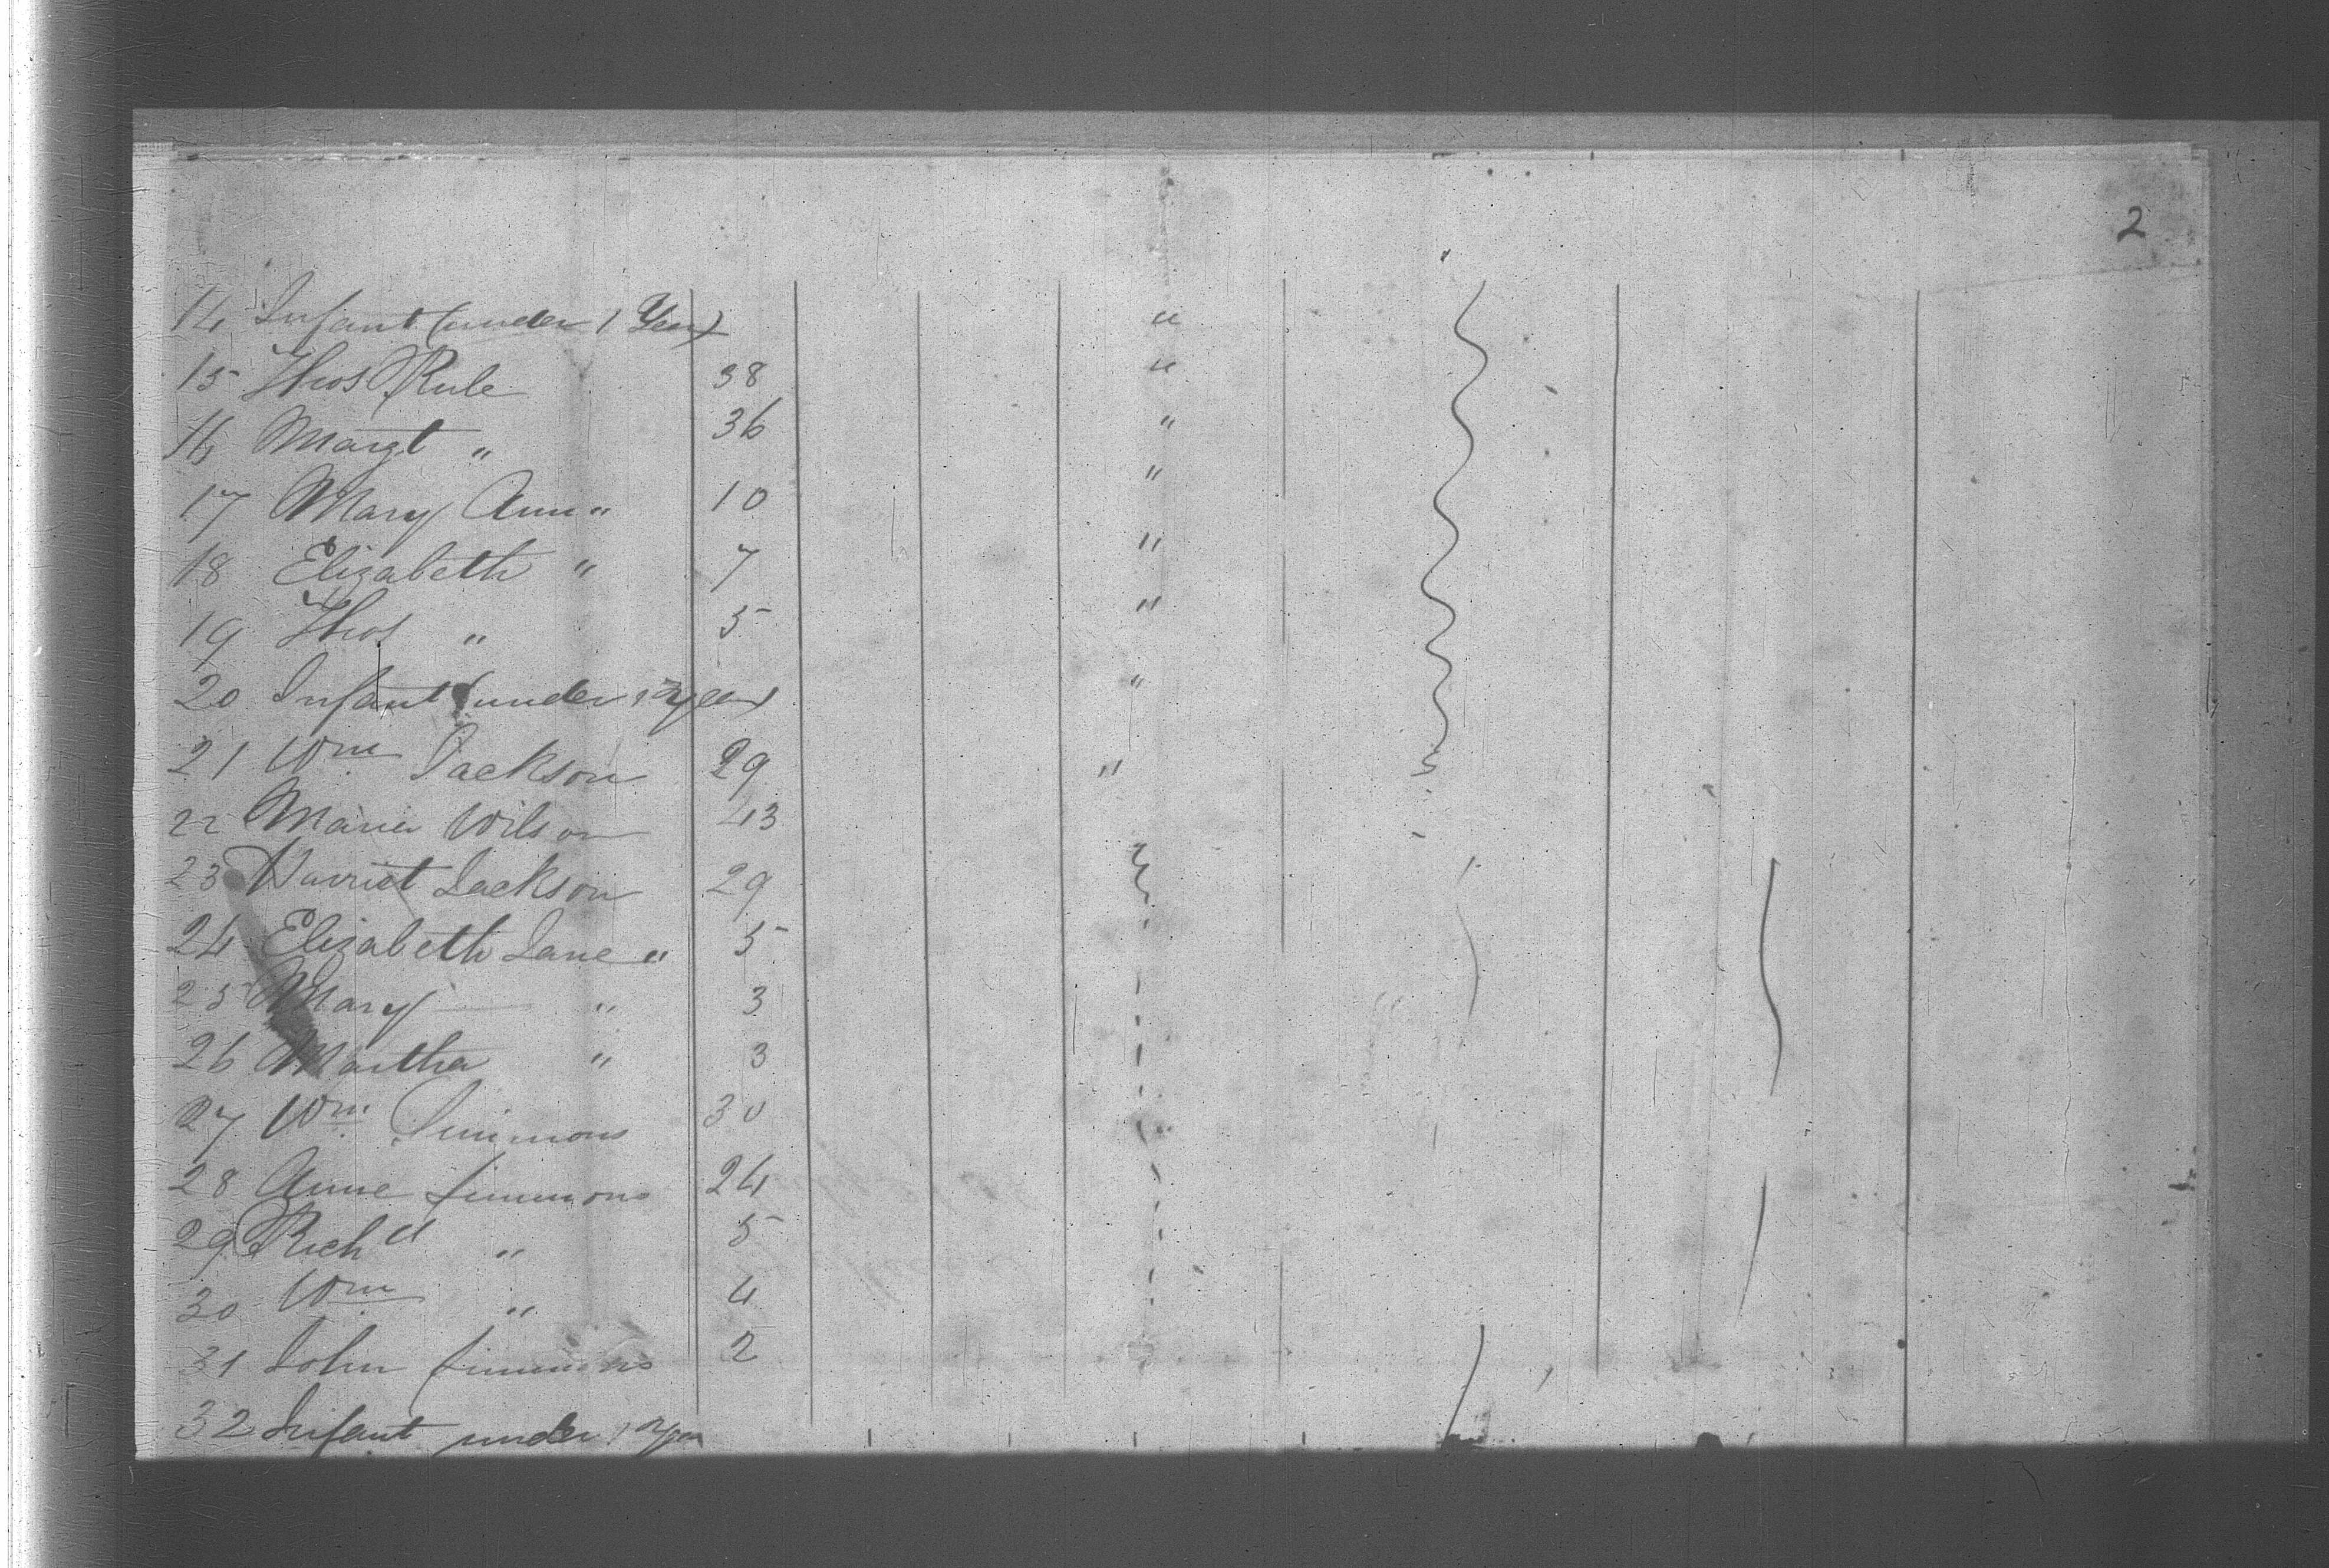 2
14 Infant (under 1 Year) "
15 Thos Rule 38 "
16 Margt " 36 "
17 Mary Ann " 10 "
18 Elizabeth " 7 "
19 Thos " 5 "
20 Infant (under 1 Year) "
21 Wm Jackson 29 "
22 Maria Wilson 43
23 Harriet Jackson 29
24 Elizabeth Jane " 5
25 Mary " 3
26 Martha " 3
27 Wm Simmons 30
28 Anne Simmons 24
29 Richd " 5
30 Wm " 4
31 John Simmons 2
32 Infant under 1 Year